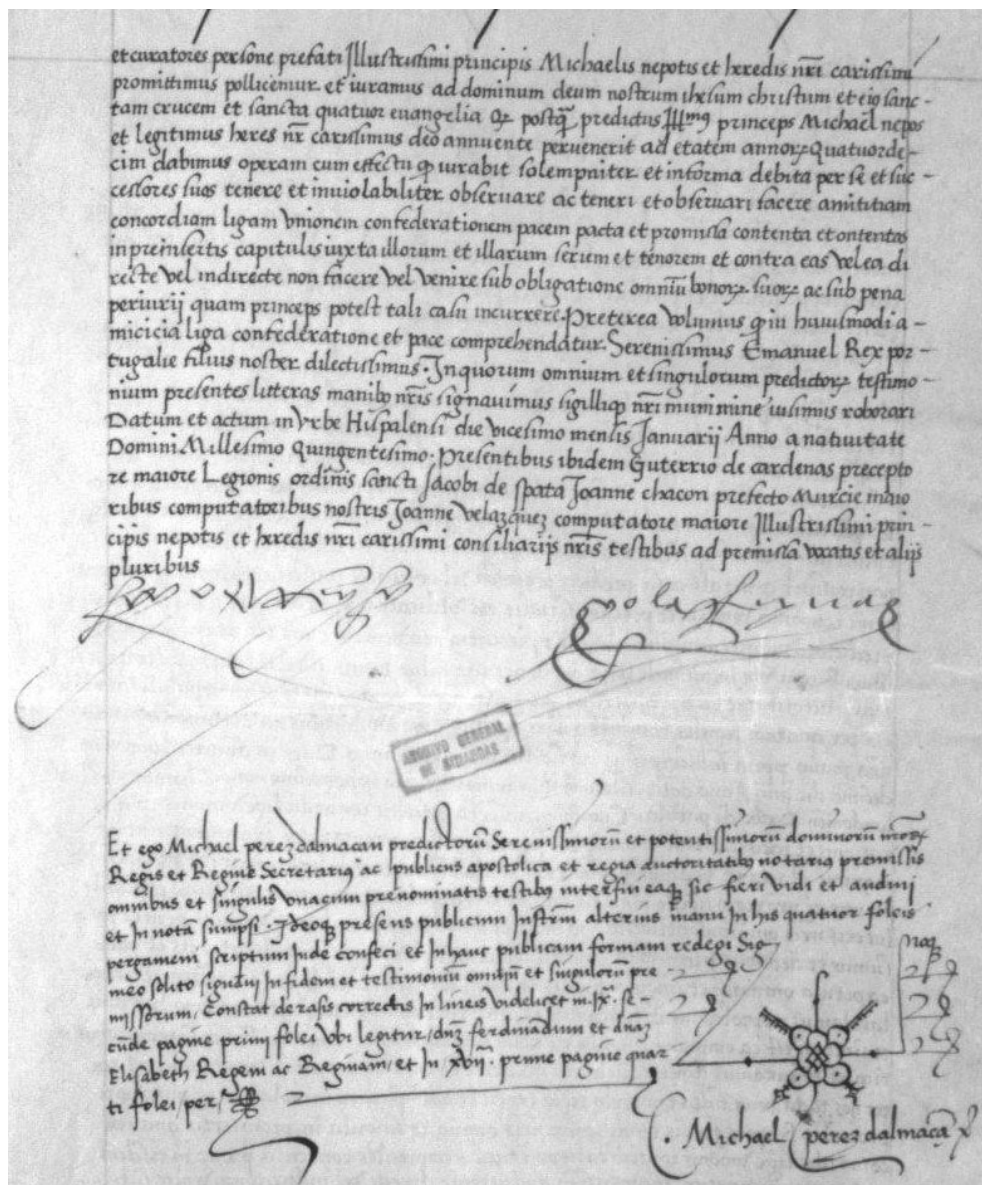 et curatores persone prefati Illustrissimi principis Michaelis nepotis et heredis nr̄i carissimi
promittimus pollicemur et iuramus ad dominum deum nostrum ihesum christum et eiꝰ sanc-
tam crucem et sancta quatuor euangelia qꝫ postq̄ predictus Illmꝰ princeps Michael nepos
et legitimus heres nr̄ carissimus deo annuente peruenerit ad etatem annoꝝ quatuorde-
cim dabimus operam cum effectu qꝫ iurabit solempniter et informa debita per se et suc-
cessores suos tenere et inuiolabiliter obseruare ac teneri et obseruari facere amicitiam
concordiam ligam vnionem confederationem pacem pacta et promissa contenta et contentas
in preinsertis capitulis iuxta illorum et illarum seriem et tenorem et contra eas vel ea di
recte vel indirecte non facere vel venire sub obligatione omniū bonoꝝ suoꝝ ac sub pena
periurij quam princeps potest tali casu incurrere. Preterea volumus qꝫ in huiusmodi a-
micicia liga confederatione et pace comprehendatur. Serenissimus Emanuel Rex por-
tugalie filius noster dilectissimus. In quorum omnium et singulorum predictoꝝ testimo-
nium presentes litteras manibꝰ nr̄is signauimus sigilliqꝫ nr̄i munimine iusimus roborari
Datum et actum in Vrbe Hispalensi die vicesimo mensis Januarij Anno a natiuitate
Domini Millesimo Quingentesimo. Presentibus ibidem Guterrio de cardenas precepto
re maiore Legionis ordinis sancti Jacobi de spata Joanne chacon prefecto Murcie maio
ribus computatoribus nostris Joanne Velazquez computatore maiore Illustrissimi prin-
cipis nepotis et heredis nr̄i carissimi consiliarijs nr̄is testibus ad premissa vocatis et alijs
pluribus
yo el Rey yo la Reyna
ARCHIVO GENERAL
DE SIMANCAS
Et ego Michael perez dalmacan predictorū Serenissimorū et potentissimorū dominorū nr̄oꝝ
Regis et Regine Secretariꝰ ac publicus apostolica et regia auctoritatibꝰ notariꝰ premissis
omnibus et singulis vnacum prenominatis testibꝰ interfui eaqꝫ sic fieri vidi et audiui
et In notā sumpsi. Ideoqꝫ presens publicum Instrm̄ alterius manu In his quatuor foleis
pergameni scriptum Inde confeci et In hanc publicam formam redegi Sig
noqꝫ
meo solito signaui In fidem et testimoniū omniū et singulorū pre-
missorum, Constat de rasis correctis In lineis videlicet se-
cūde pagine primi folei vbi legitur, dnꝫ ferdinandum et dnāꝫ
Elisabeth Regem ac Reginam, et In xvij. prime pagine quar
ti folei, per,
Michael perez dalmacā